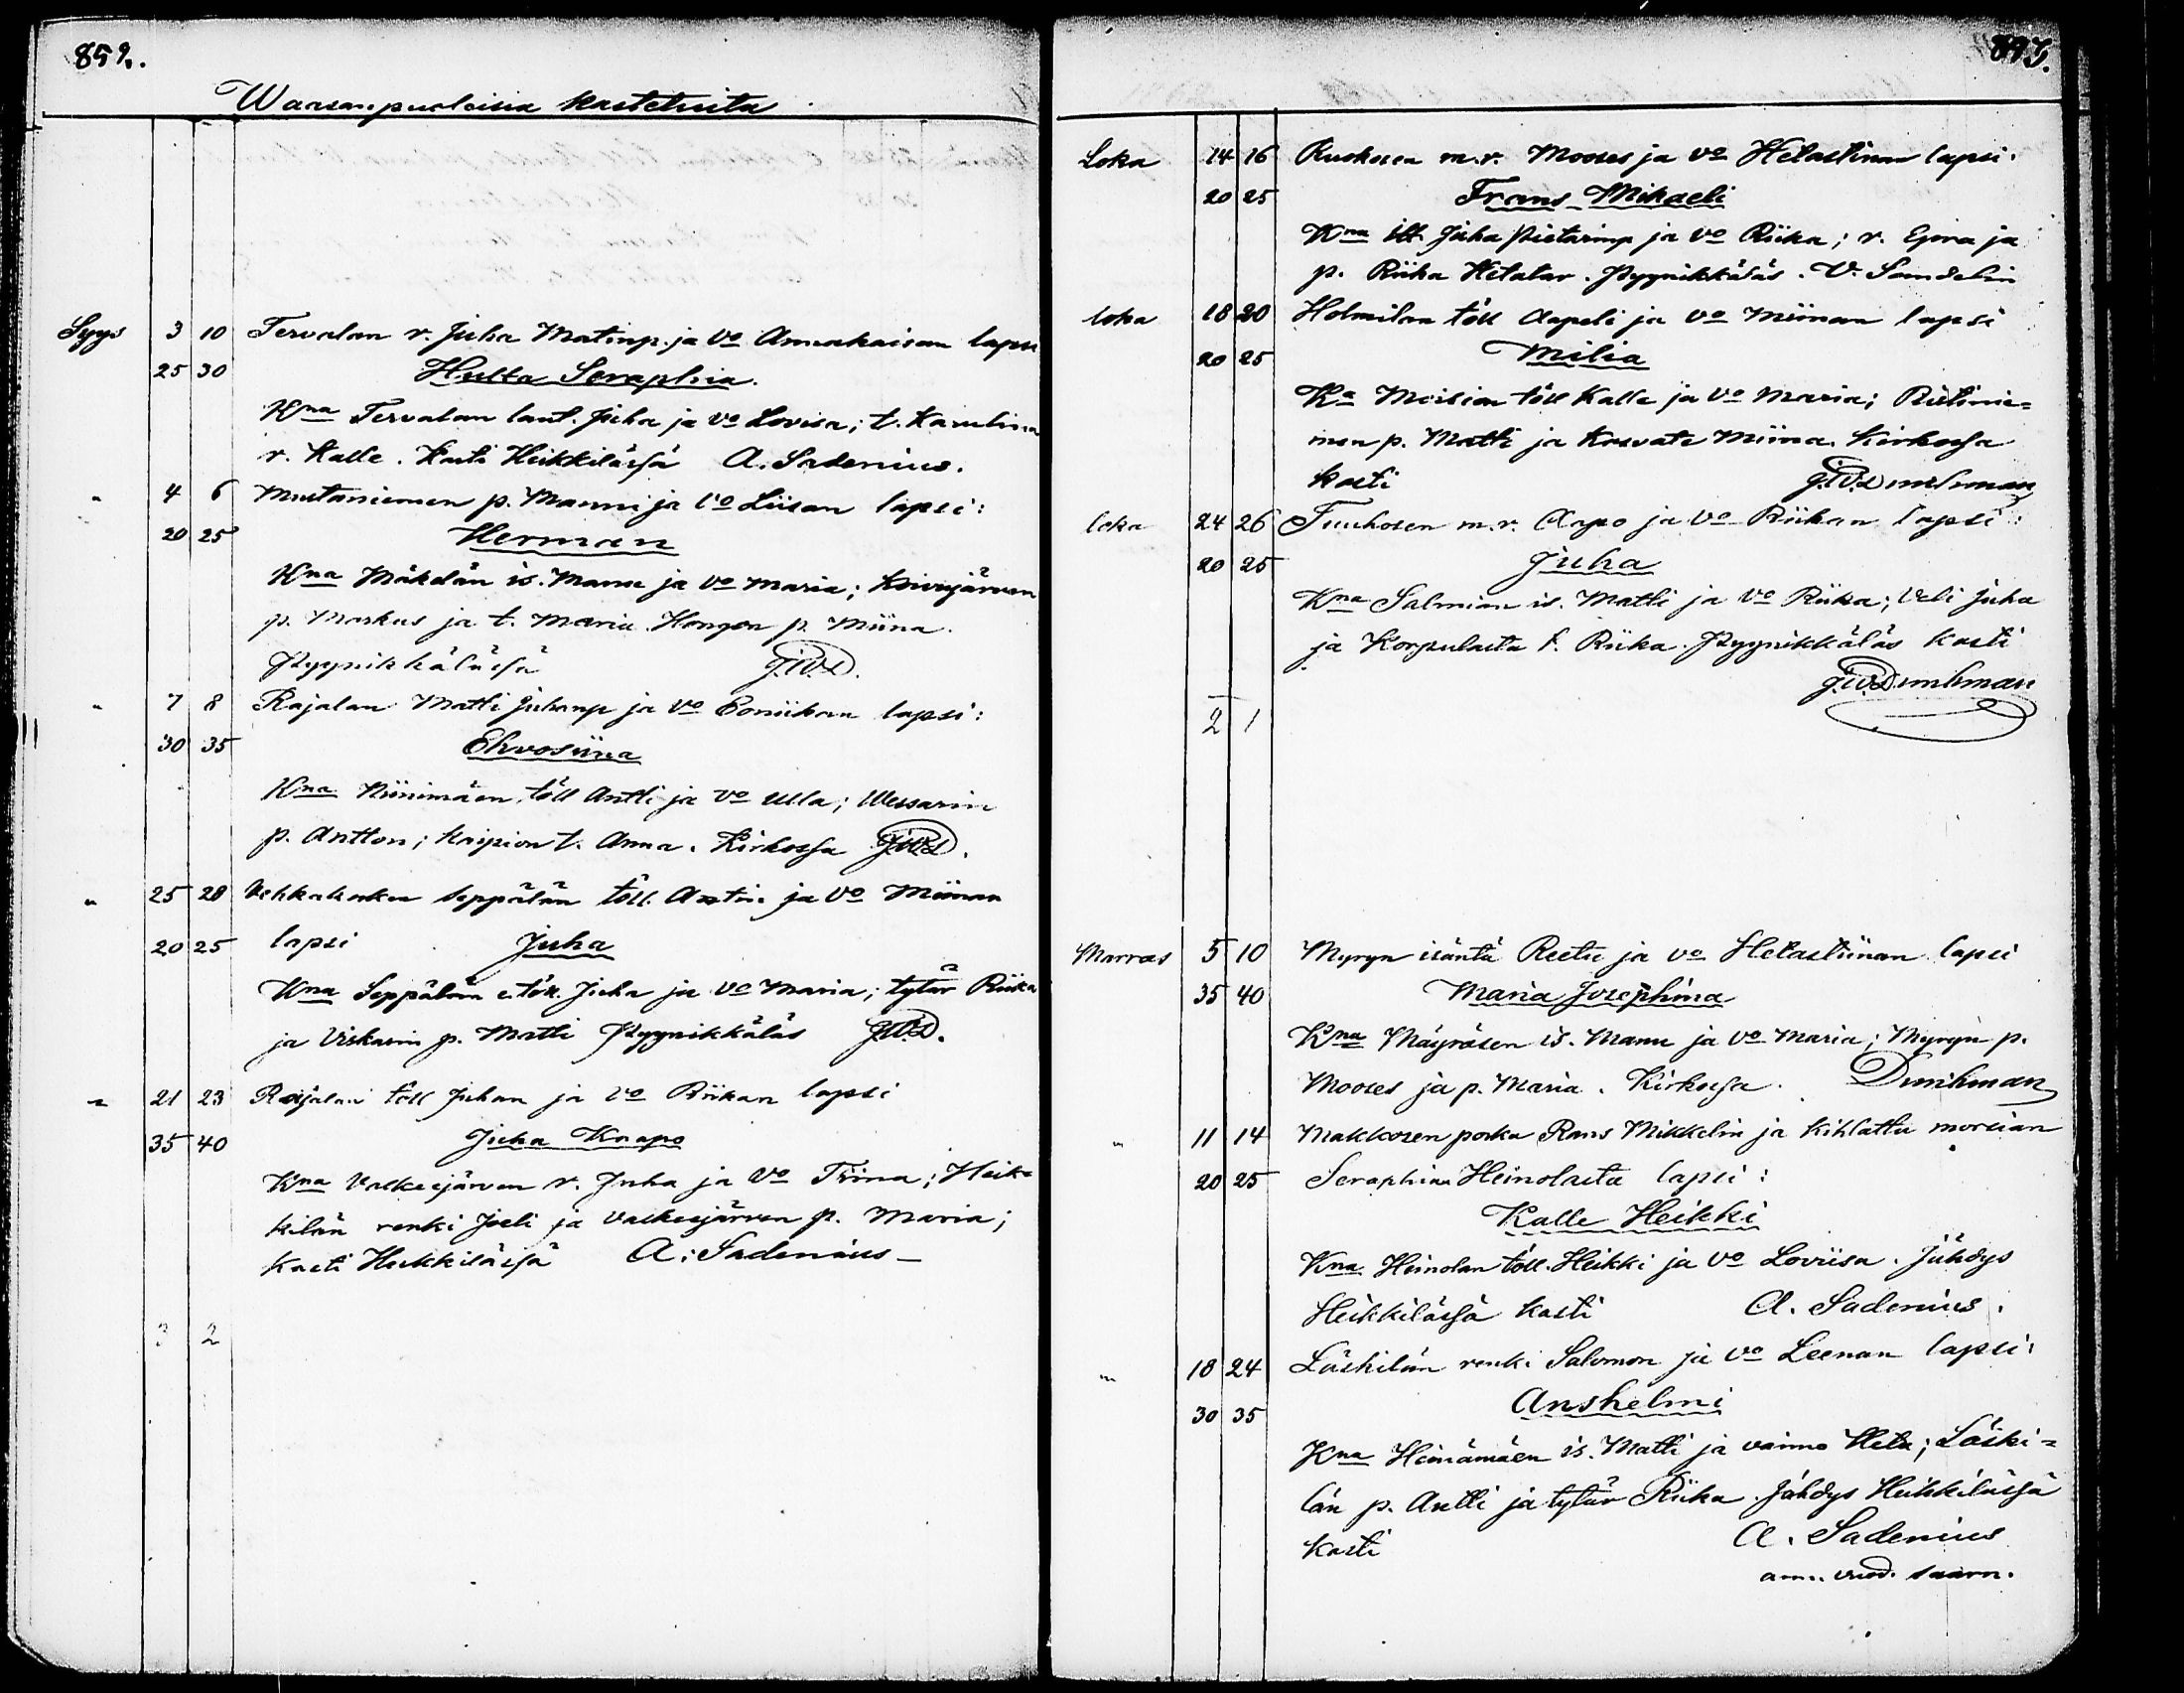 859.
Waasanpuoleisia kastetuita
Syys 3 10 Tervalan r. Juha Matinp. ja vo Annakaisan lapsi
25 30 Hulta Seraphia.
Kna Tervalan laut. Juha ja vo Lovisa; t. Karulina
r. Kalle. Kasti Heikkilässä A. Sadenius.
" 4 6 Mustaniemen p. Manni ja vo Liisan lapsi:
20 25 Herman
Kna Mäkelän is. Manu ja vo Maria; Koivujärven
p. Markus ja t. Maria Hongon p. Miina.
Pyynikkälässä J.W.D.
" 7 8 Rajalan Matti Juhanp ja vo Eoriikan lapsi:
30 35 Ehvosiina
Kna Niinimäen töll Antti ja vo Ulla; Wessarin
p. Antton; Kaipion t. Anna. Kirkossa J.W.D.
" 25 28 Vehkakosken Seppälän töll. Antin ja vo Miinan
20 25 lapsi Juha
Kna Seppälän e.töll. Juha ja vo Maria; tytär Riika
ja Viskarin p. Matti Pyynikkäläs J.W.D.
" 21 23 Rajalan töll Juhan ja vo Riikan lapsi
35 40 Juha Knapo
Kna Valkeejärven r. Juha ja vo Triina; Heik=
kilän renki Joeli ja Valkeejärven p. Maria;
Kasti Heikkilässä A. Sadenius
3 2
Loka 14 16 Ruokosen m.r. Mooses ja vo Hetastinan lapsi.
20 25 Frans Mikaeli
Kna itt. Juha Pietarinp ja vo Riika; r. Ejna ja
p. Riika Hetatar. Pyynikkäläs. V. Sandelin
loka 18 20 Holmilan töll Aapeli ja vo Miinan lapsi
20 25 Milia
Ka Moision töll Kalle ja vo Maria; Ristinie=
men p. Matti ja Kasvate Miina. Kirkossa
kasti J.W.Durchman
loka 24 26 Tuuhosen m.r. Aapo ja vo Riikan lapsi:
20 25 Juha
Kna Salmian is. Matti ja vo Riika; Veli Juha
ja Korpulasta t. Riika. Pyynikkäläs Kasti
J.W.Durchman
2 1
Marras 5 10 Myryn isäntä Reetu ja vo Hetastiinan lapsi
35 40 Maria Josephina
Kna Mäyräsen is. Manu ja vo Maria; Myryn p.
Mooses ja p. Maria. Kirkossa. Durchman
" 11 14 Makkosen poika Rans Mikkelin ja kihlattu morsian
20 25 Seraphiina Heinolasta lapsi:
Kalle Heikki
Kna Heinolan töll. Heikki ja vo Loviisa. Jähdys
Heikkilässä kasti A. Sadenius.
" 18 24 Läskilän renki Salomon ja vo Leenan lapsi:
30 35 Anshelmi
Kna Heinämäen is. Matti ja vaimo Heta; Läski=
län p. Antti ja tytär Riika. Jähdys Heikkilässä
Kasti A. Sadenius
saarn.